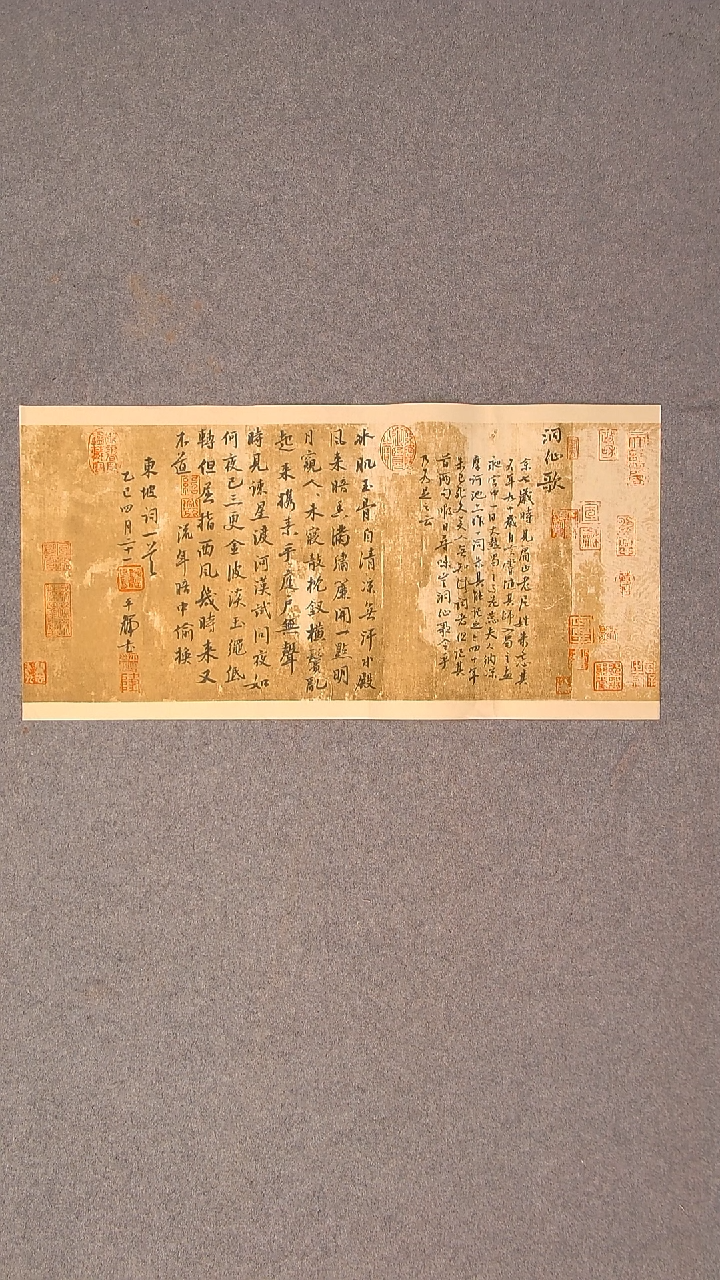 洞仙歌
余七歲時見眉山老尼姓朱忘其
名年九十歲自言嘗隨其師入蜀主孟
昶宮中一日大熱蜀主与花蕊夫人納涼
摩訶池上作一詞朱具能記之今四十年
朱已死久矣人無知此詞者但記其
首兩句暇日尋味豈洞仙歌令乎
乃為足之云
冰肌玉骨自清涼無汗水殿
風來暗香滿繡簾開一點明
月窺人、未寢攲枕釵橫鬢亂
起來攜素手庭戶無聲
時見疎星渡河漢試問夜如
何夜已三更金波淡玉繩低
轉但屈指西風幾時來又
不道流年暗中偷換
東坡詞一首
乙巳四月二十
书